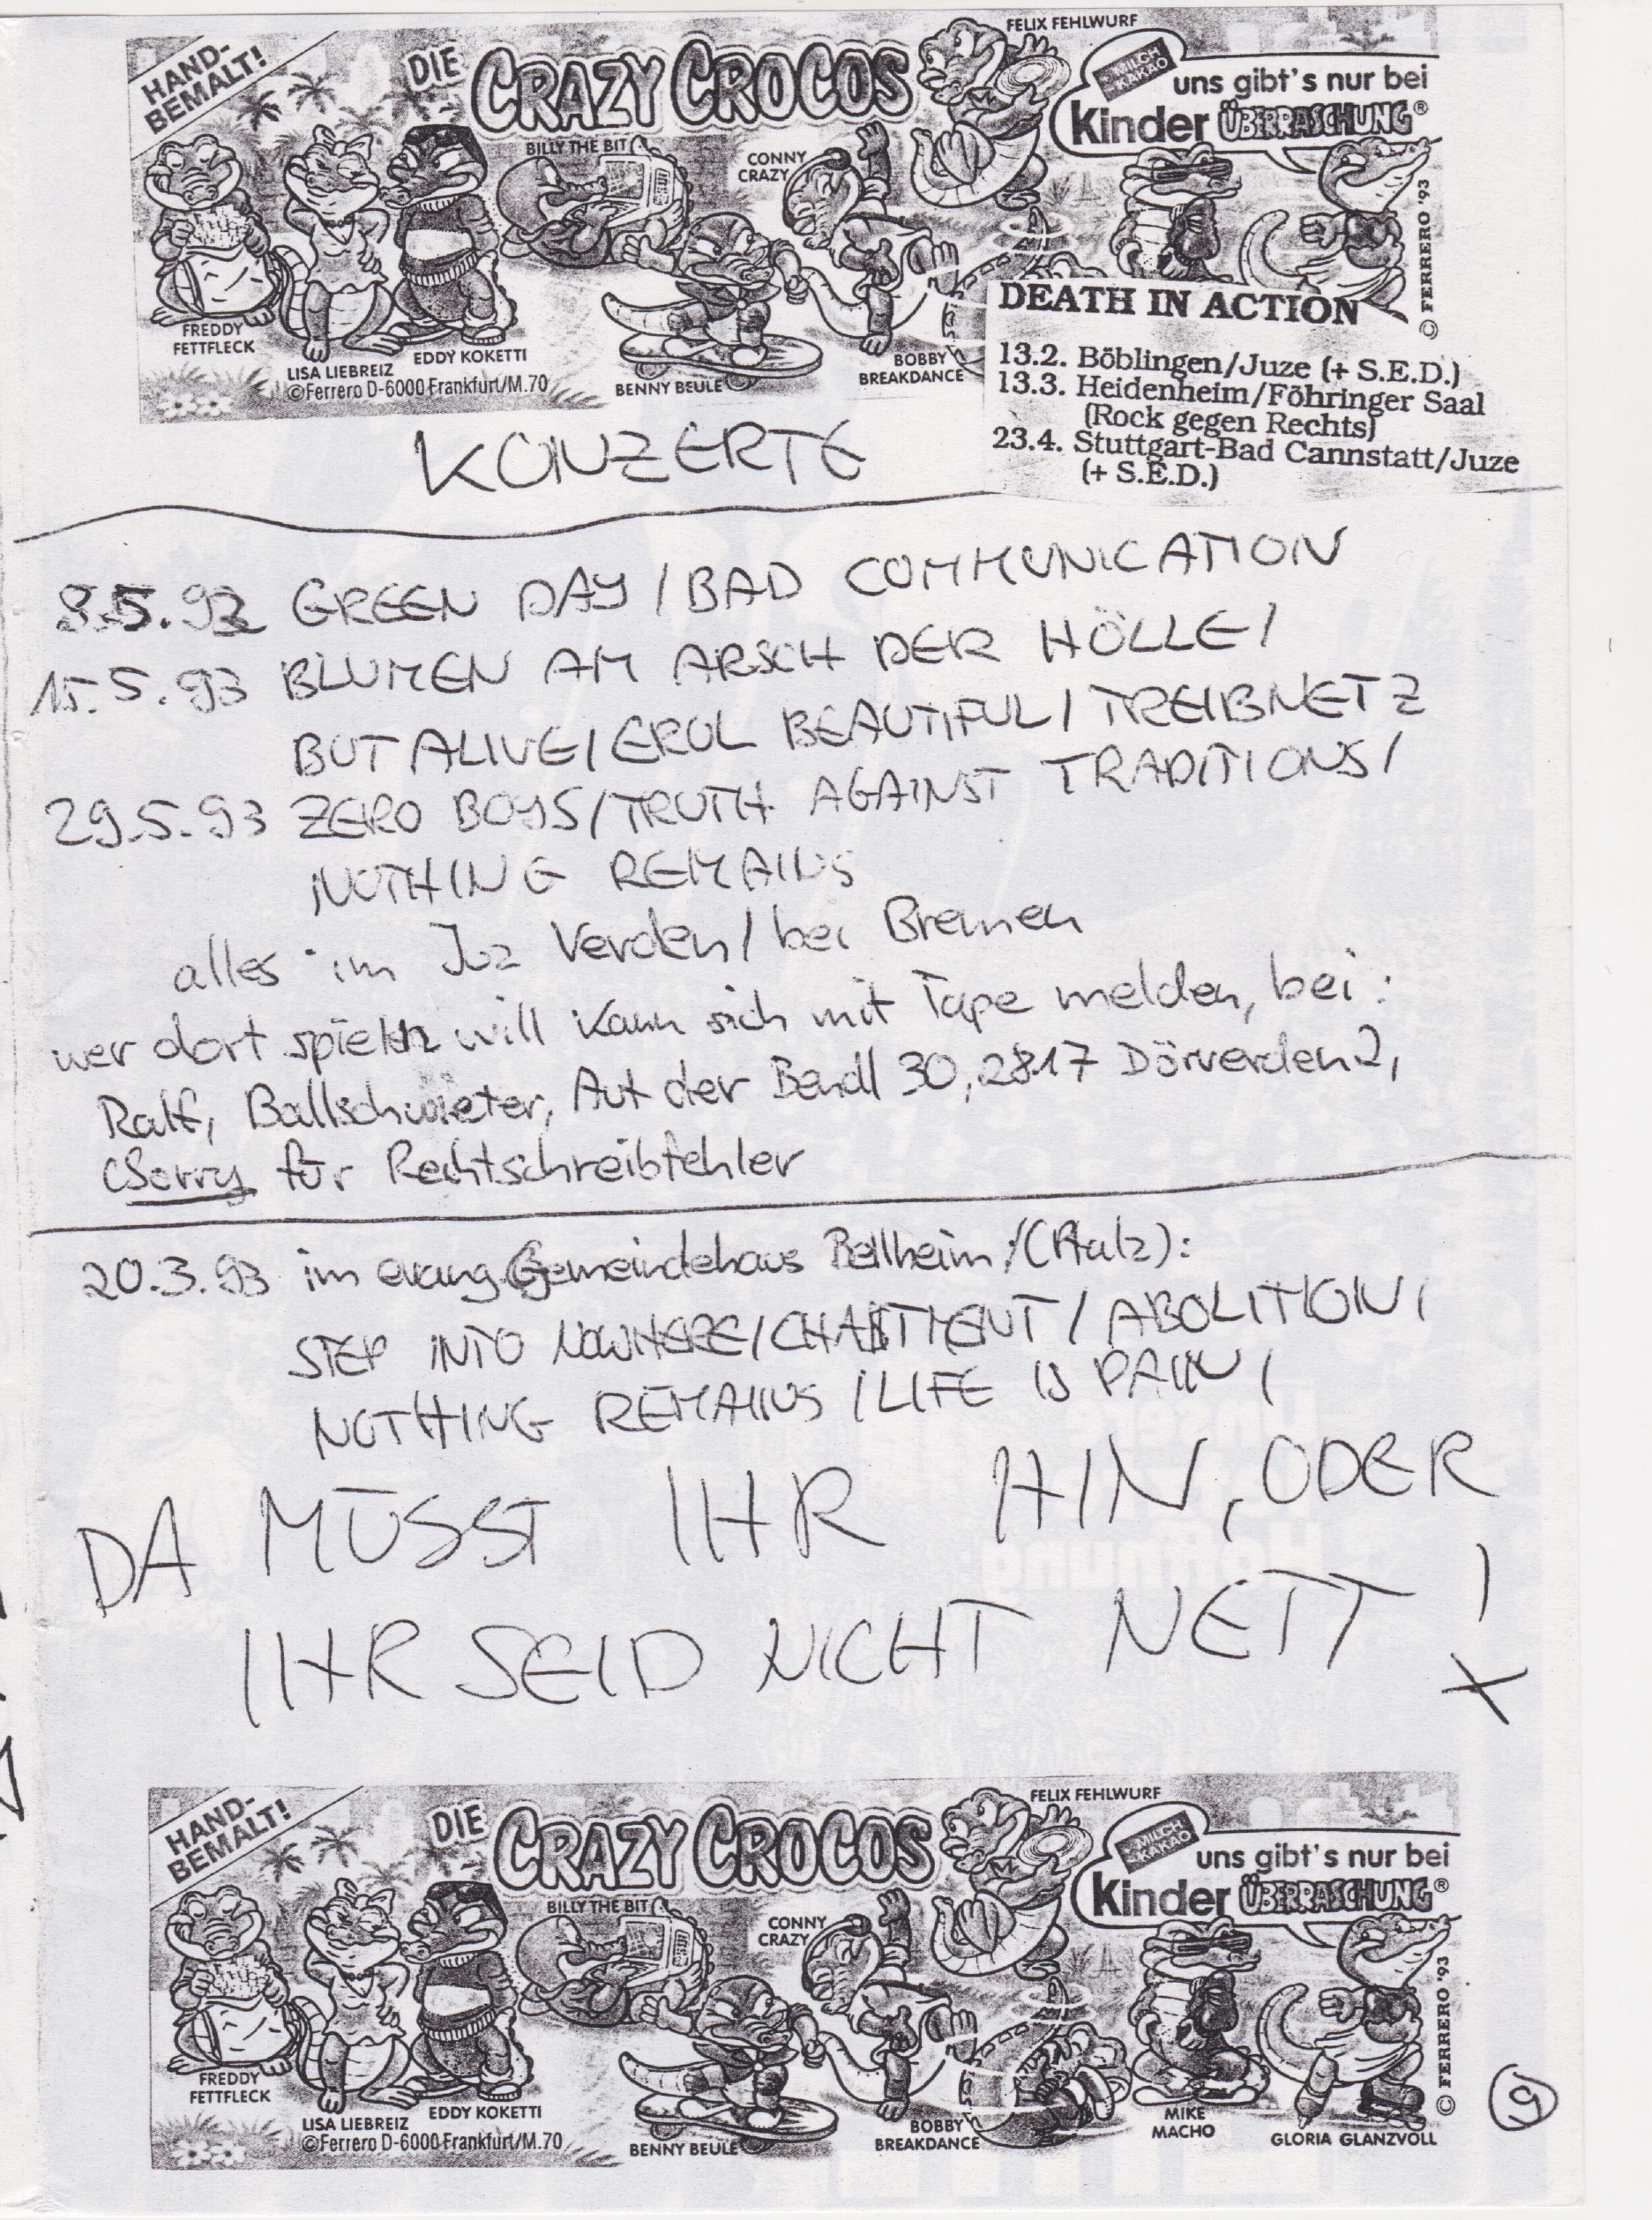 HAND-
BEMALT!
DIE CRAZY CROCOS
FELIX FEHLWURF
MILCH
KAKAO
uns gibt's nur bei
Kinder ÜBERRASCHUNG®
BILLY THE BIT
CONNY
CRAZY
FREDDY
FETTFLECK
LISA LIEBREIZ
EDDY KOKETTI
©Ferrero D-6000 Frankfurt/M.70
BENNY BEULE
BOBBY
BREAKDANCE
© FERRERO '93
DEATH IN ACTION
13.2. Böblingen/Juze (+ S.E.D.)
13.3. Heidenheim/Föhringer Saal
(Rock gegen Rechts)
23.4. Stuttgart-Bad Cannstatt/Juze
(+ S.E.D.)
KONZERTE
8.5.93 GREEN DAY / BAD COMMUNICATION
15.5.93 BLUMEN AM ARSCH DER HÖLLE /
BUT ALIVE / EROL BEAUTIFUL / TREIBNETZ
29.5.93 ZERO BOYS / TRUTH AGAINST TRADITIONS /
NOTHING REMAINS
alles im Juz Verden / bei Bremen
wer dort spielen will kann sich mit Tape melden, bei:
Ralf, Ballschwieter, Auf der Bendl 30, 2817 Dörverden 2,
(Sorry für Rechtschreibfehler
20.3.93 im evang. Gemeindehaus Bellheim / (Pfalz):
STEP INTO NOWHERE / / ABOLITION /
NOTHING REMAINS / LIFE IS PAIN /
DA MÜSST IHR HIN, ODER
IHR SEID NICHT NETT !
HAND-
BEMALT!
DIE CRAZY CROCOS
FELIX FEHLWURF
MILCH
KAKAO
uns gibt's nur bei
Kinder ÜBERRASCHUNG®
BILLY THE BIT
CONNY
CRAZY
FREDDY
FETTFLECK
LISA LIEBREIZ
EDDY KOKETTI
©Ferrero D-6000 Frankfurt/M.70
BENNY BEULE
BOBBY
BREAKDANCE
MIKE
MACHO
GLORIA GLANZVOLL
© FERRERO '93
9